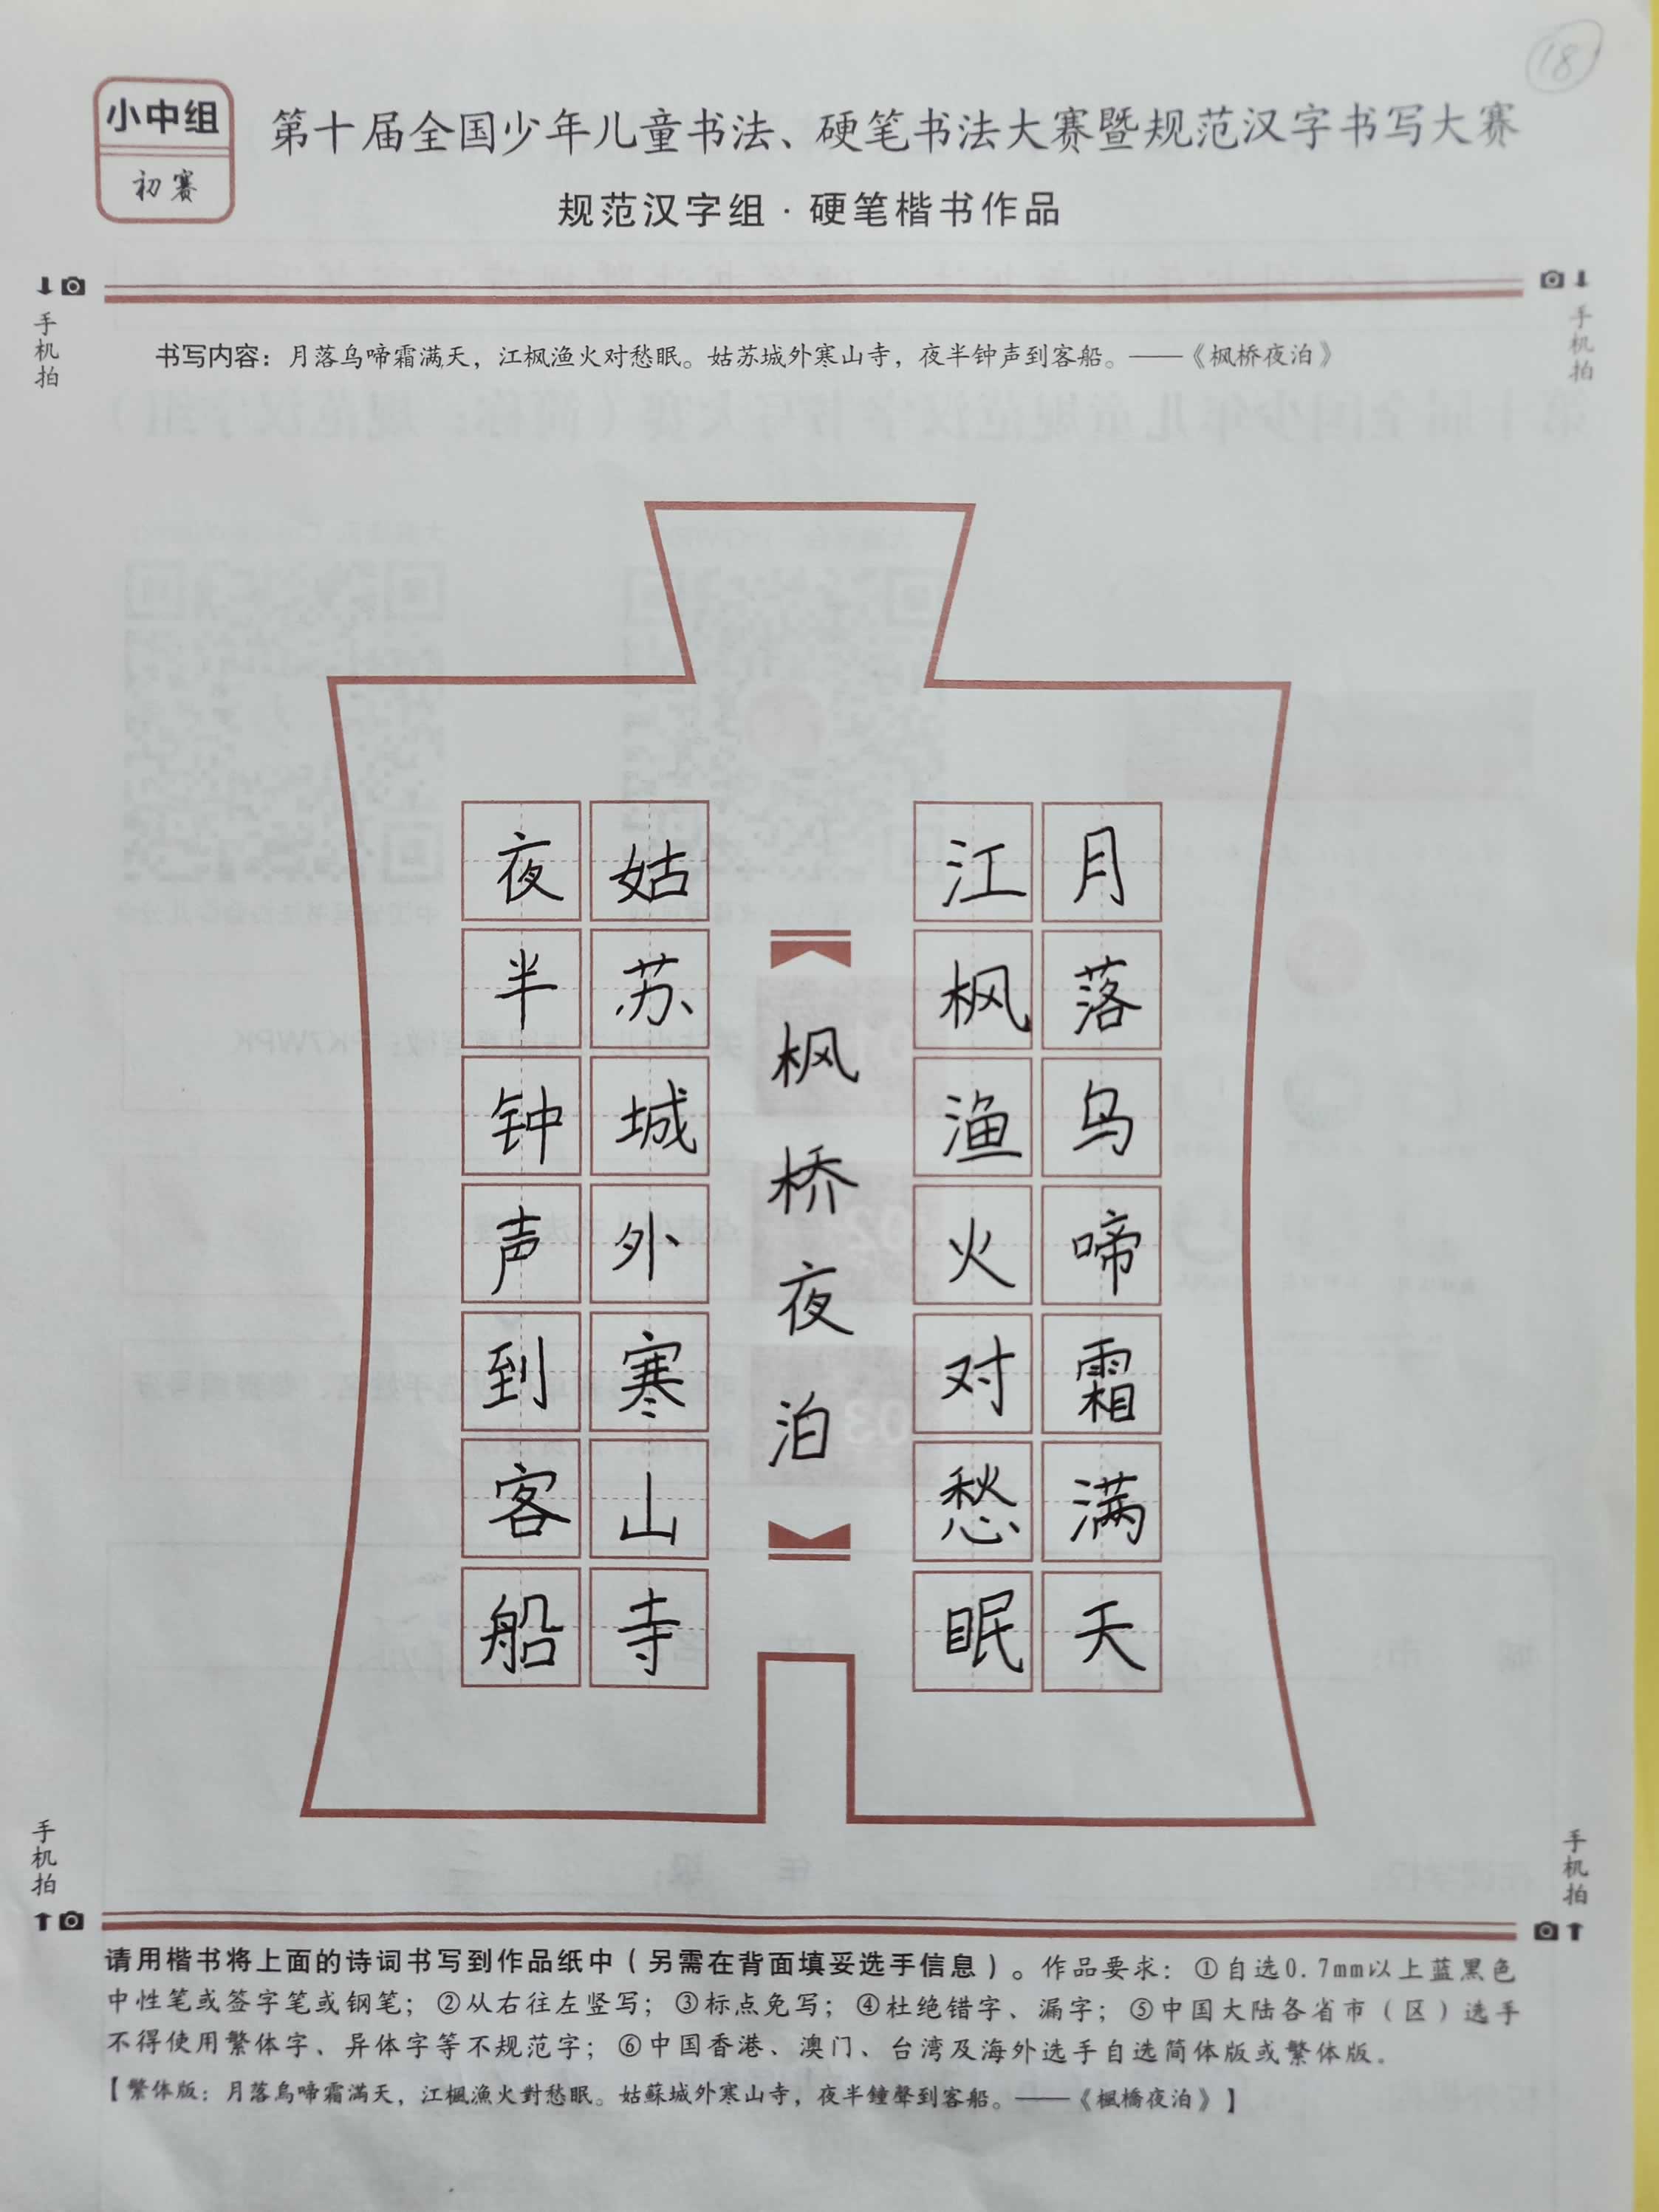 18
小中组
初赛
第十届全国少年儿童书法、硬笔书法大赛暨规范汉字书写大赛
规范汉字组·硬笔楷书作品
手机拍
手机拍
书写内容：月落乌啼霜满天，江枫渔火对愁眠。姑苏城外寒山寺，夜半钟声到客船。——《枫桥夜泊》
月落乌啼霜满天
江枫渔火对愁眠
枫桥夜泊
姑苏城外寒山寺
夜半钟声到客船
手机拍
手机拍
请用楷书将上面的诗词书写到作品纸中（另需在背面填妥选手信息）。作品要求：①自选0.7mm以上蓝黑色
中性笔或签字笔或钢笔；②从右往左竖写；③标点免写；④杜绝错字、漏字；⑤中国大陆各省市（区）选手
不得使用繁体字、异体字等不规范字；⑥中国香港、澳门、台湾及海外选手自选简体版或繁体版。
【繁体版：月落烏啼霜滿天，江楓漁火對愁眠。姑蘇城外寒山寺，夜半鐘聲到客船。——《楓橋夜泊》】